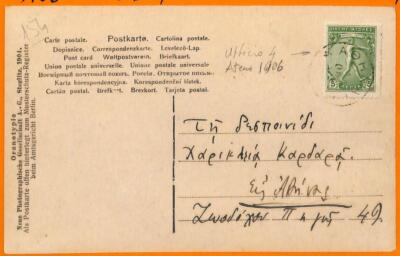 154
Carte postale. Postkarte. Cartolina postale.
Dopisnice. Correspondenzkarte. Levelező-Lap.
Post card Weltpostverein. Briefkaart.
Union postale universelle. Unione postale universale
Всемирный почтовый союзъ. Россiя. Открытое письмо.
Karta korespondencyjna. Korespondenční lístek.
Cartão postal. Brefkort. Brevkort. Tarjeta postal.
Ufficio 4
Atene 1906
Τῇ δεσποινίδι
Χαρικλείᾳ Καρδαρᾶ.
Εἰς Ἀθήνας
Ζωοδόχου Πηγῆς 49.
Oranotypie
Neue Photographische Gesellschaft A.-G., Steglitz 1904.
Als Postkarte offen hinterlegt zum Musterschutz-Register
beim Amtsgericht Berlin.